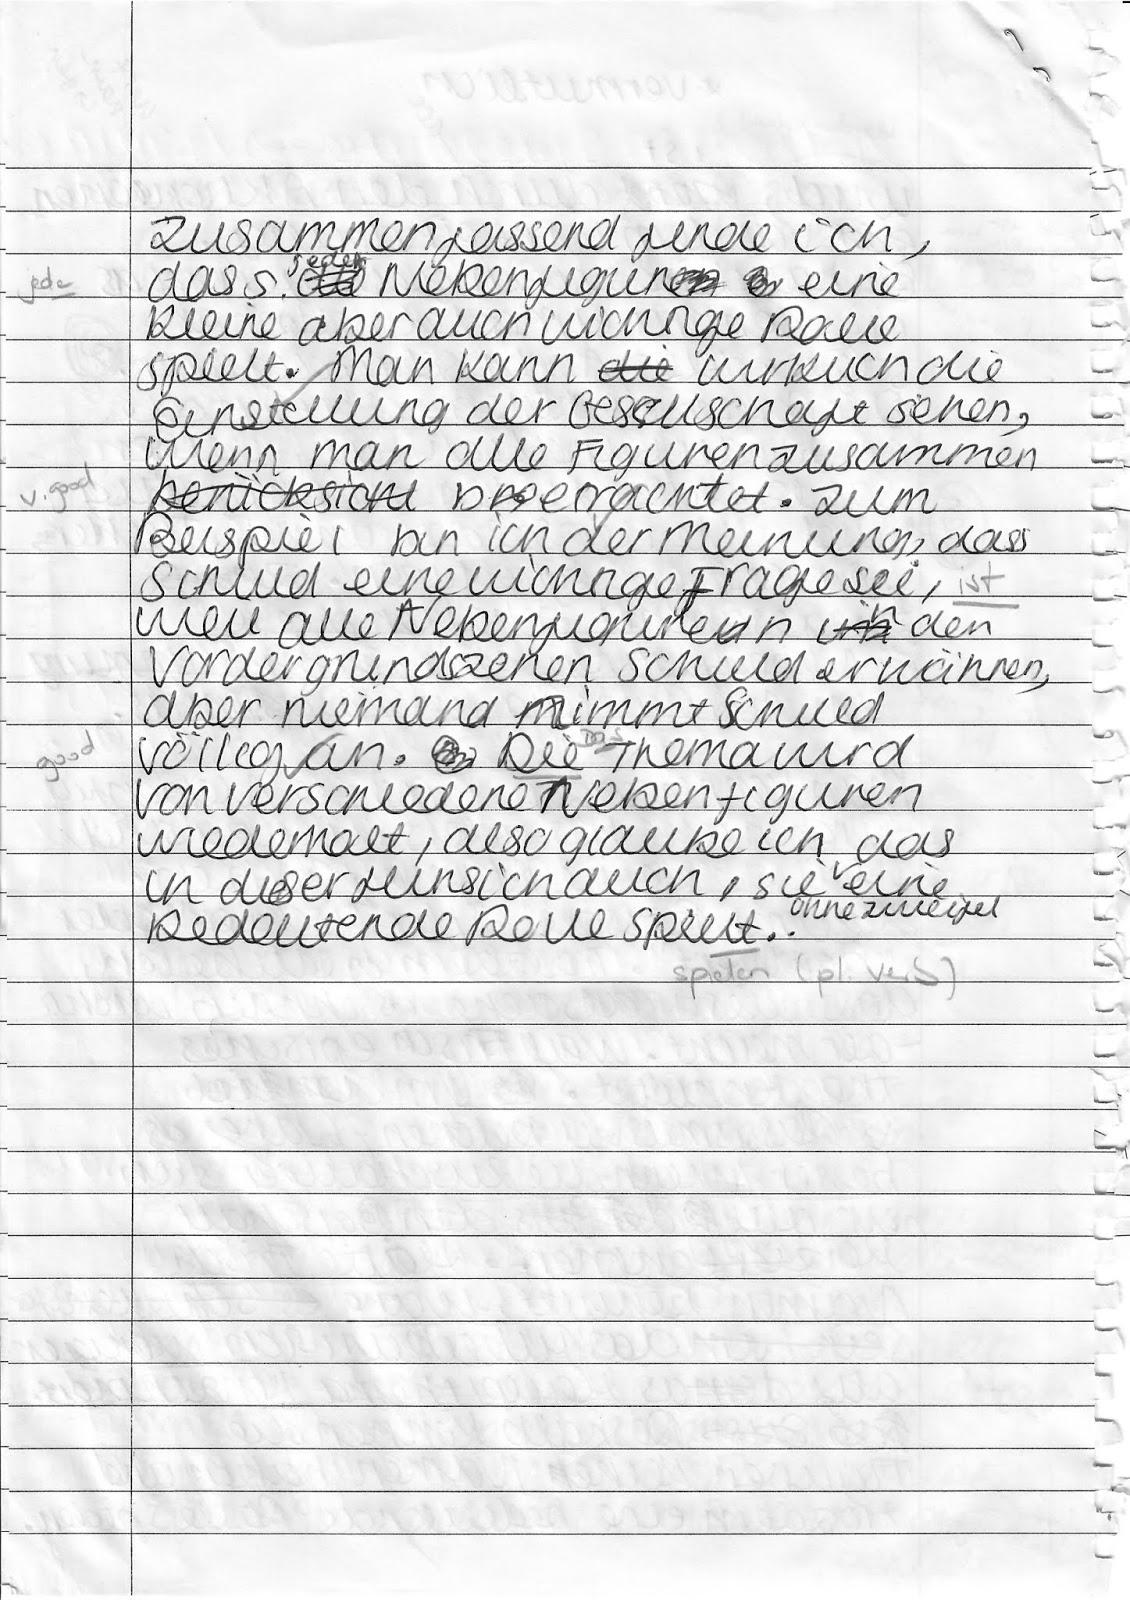 Zusammenfassend finde ich,
jede
dass jeder Nebenfigur eine
kleine aber auch wichtige Rolle
spielt. Man kann die wirklich die
Einstellung der Gesellschaft sehen,
wenn man alle Figuren zusammen
v. good
berücksicht betrachtet. Zum
Beispiel bin ich der Meinung, dass
Schuld eine wichtige Frage sei, ist
weil alle Nebenfiguren in den
Vordergrundszenen Schuld erwähnen,
aber niemand nimmt Schuld
good
völlig an. Die Das Thema wird
von verschiedene Nebenfiguren
wiederholt, also glaube ich das
in dieser Hinsicht auch, sie eine
ohne zweifel
bedeutende Rolle spielt.
spielen (pl. verb)